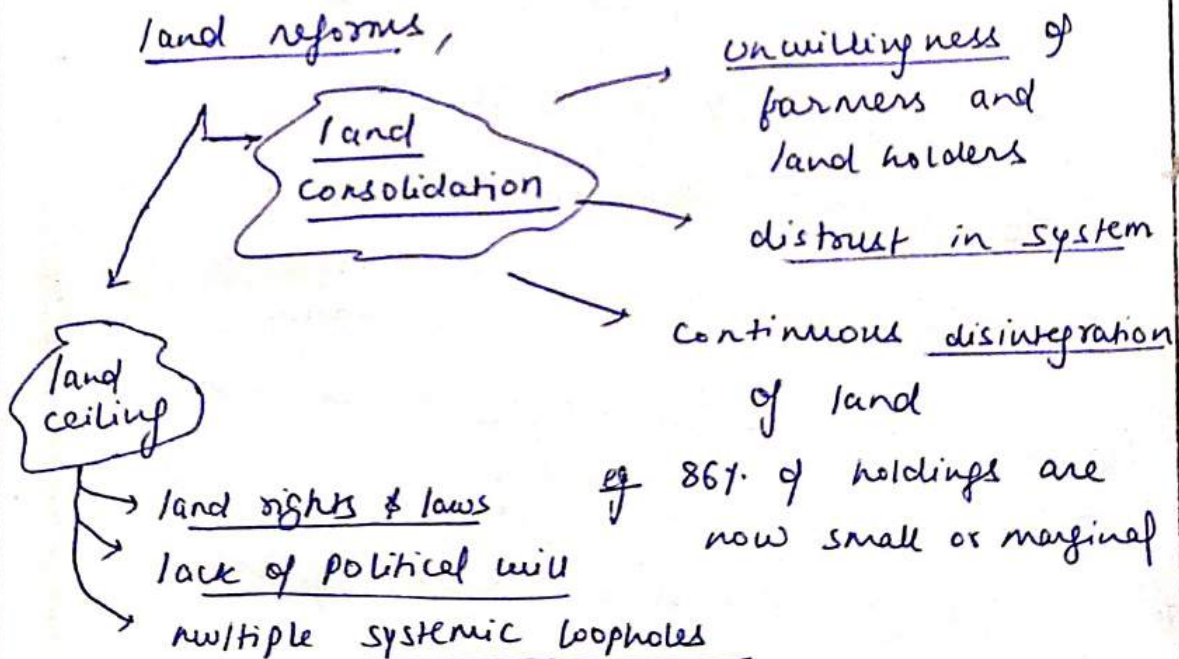 land reforms,
land
consolidation
unwillingness of
farmers and
land holders
distrust in system
continuous disintegration
of land
eg 86%. of holdings are
now small or marginal
land
ceiling
land rights & laws
lack of political will
multiple systemic loopholes